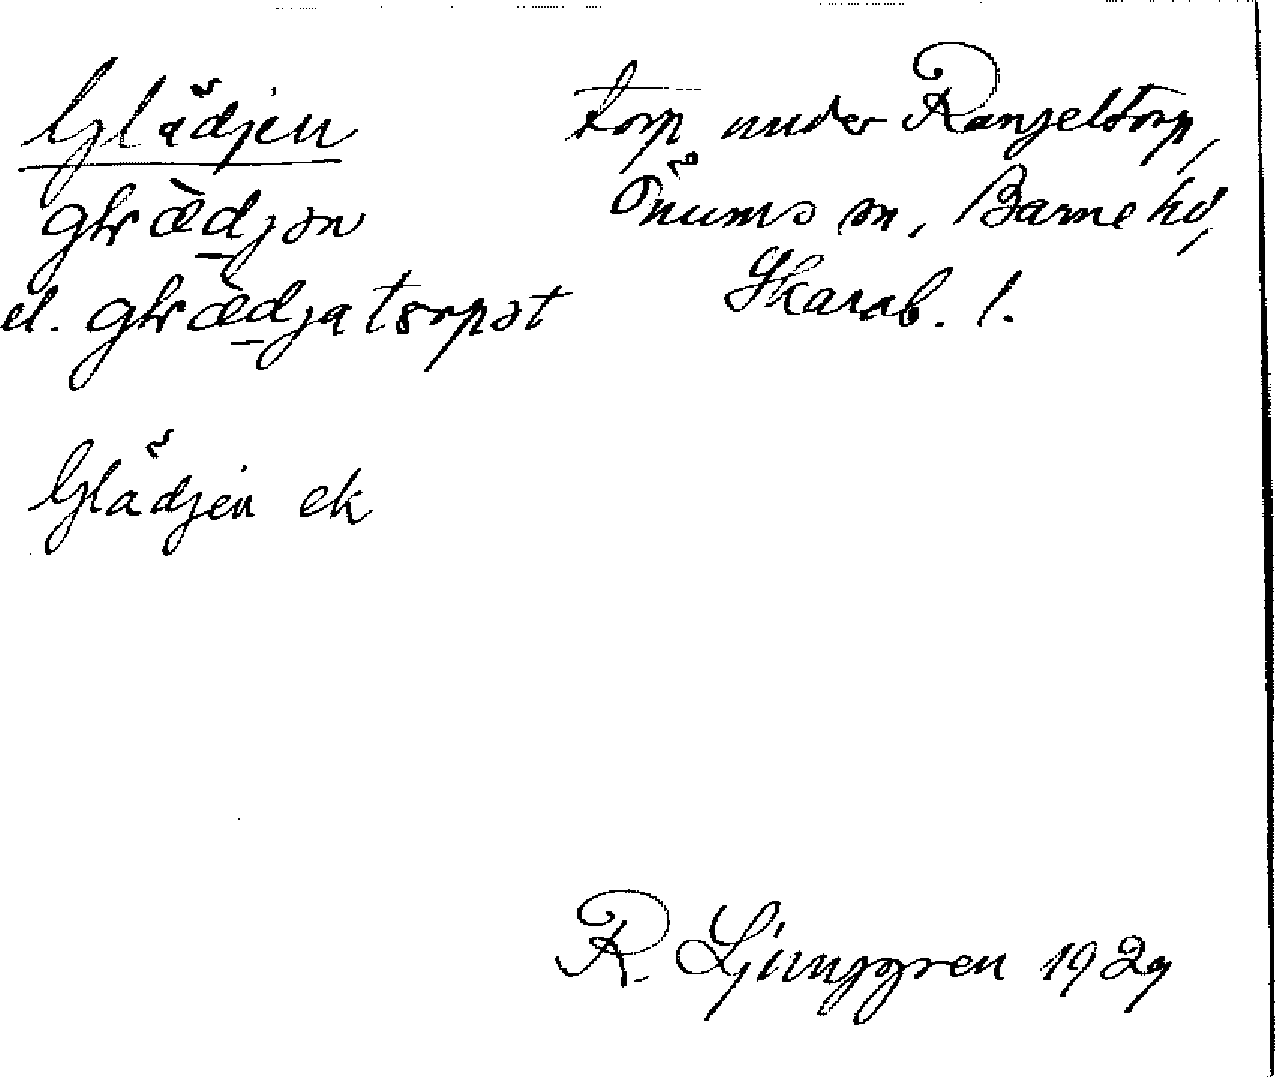 Glädjen
glædjən
el. glædjatorpət
Glädjen ek
torp under Rangeltorp,
Önums sn, Barne hd,
Skarab. l.
R. Ljunggren 1929